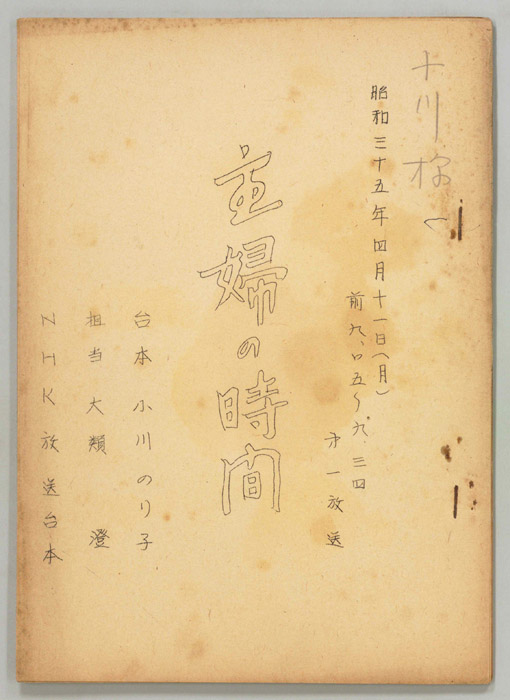 小川様
昭和三十五年四月十一日(月)
前九、〇五〜九、三四
才一放送
主婦の時間
台本 小川のり子
担当 大類 澄
NHK放送台本